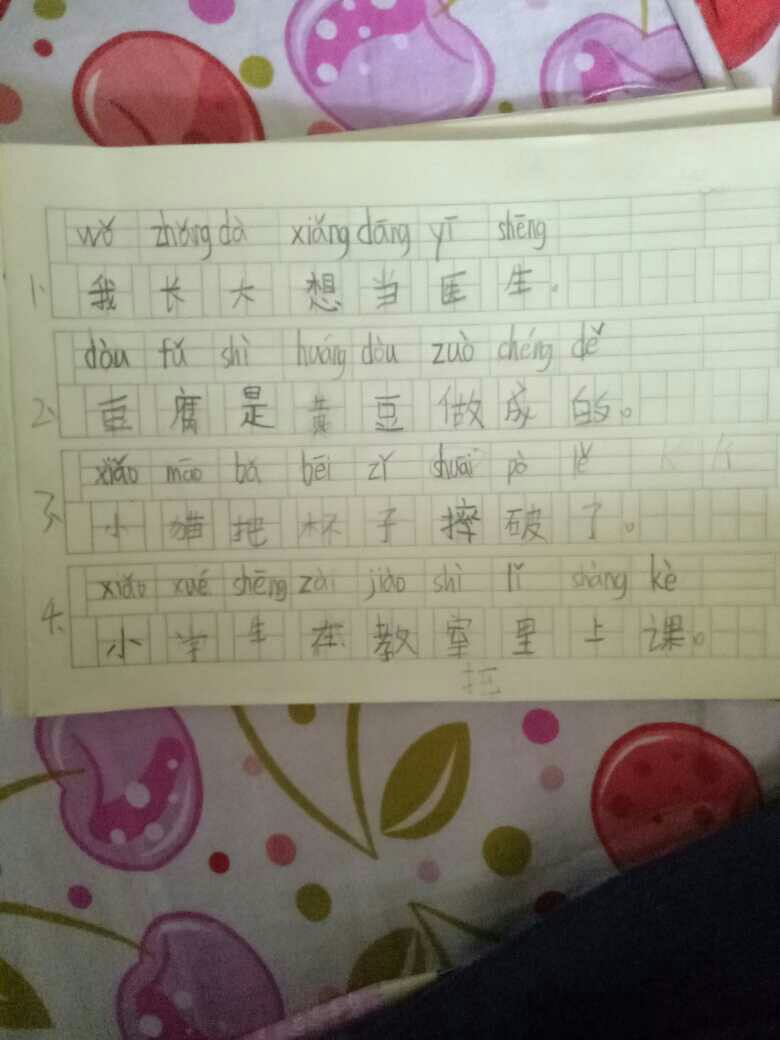 wǒ zhǎng dà xiǎng dāng yī shēng
1、我长大想当医生。
dòu fǔ shì huáng dòu zuò chéng dě
2、豆腐是黄豆做成的。
xiǎo māo bǎ bēi zǐ shuāi pò lě
3、小猫把杯子摔破了。
xiǎo xué shēng zài jiào shì lǐ shàng kè
4、小学生在教室里上课。